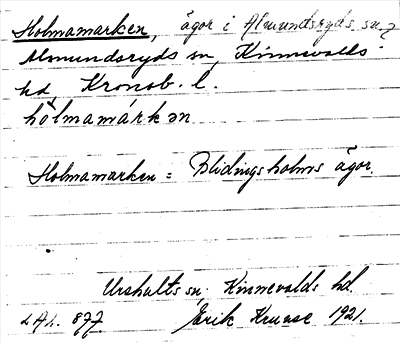 Holmamarken, ägor i Almundsryds sn,
Almundsryds sn, Kinnevalds
hd, Kronob. l.
hòlmamárkən
Holmamarken = Blidingsholms ägor.
Urshults sn, Kinnevalds hd.
LAL. 877. Erik Kruuse 1921.